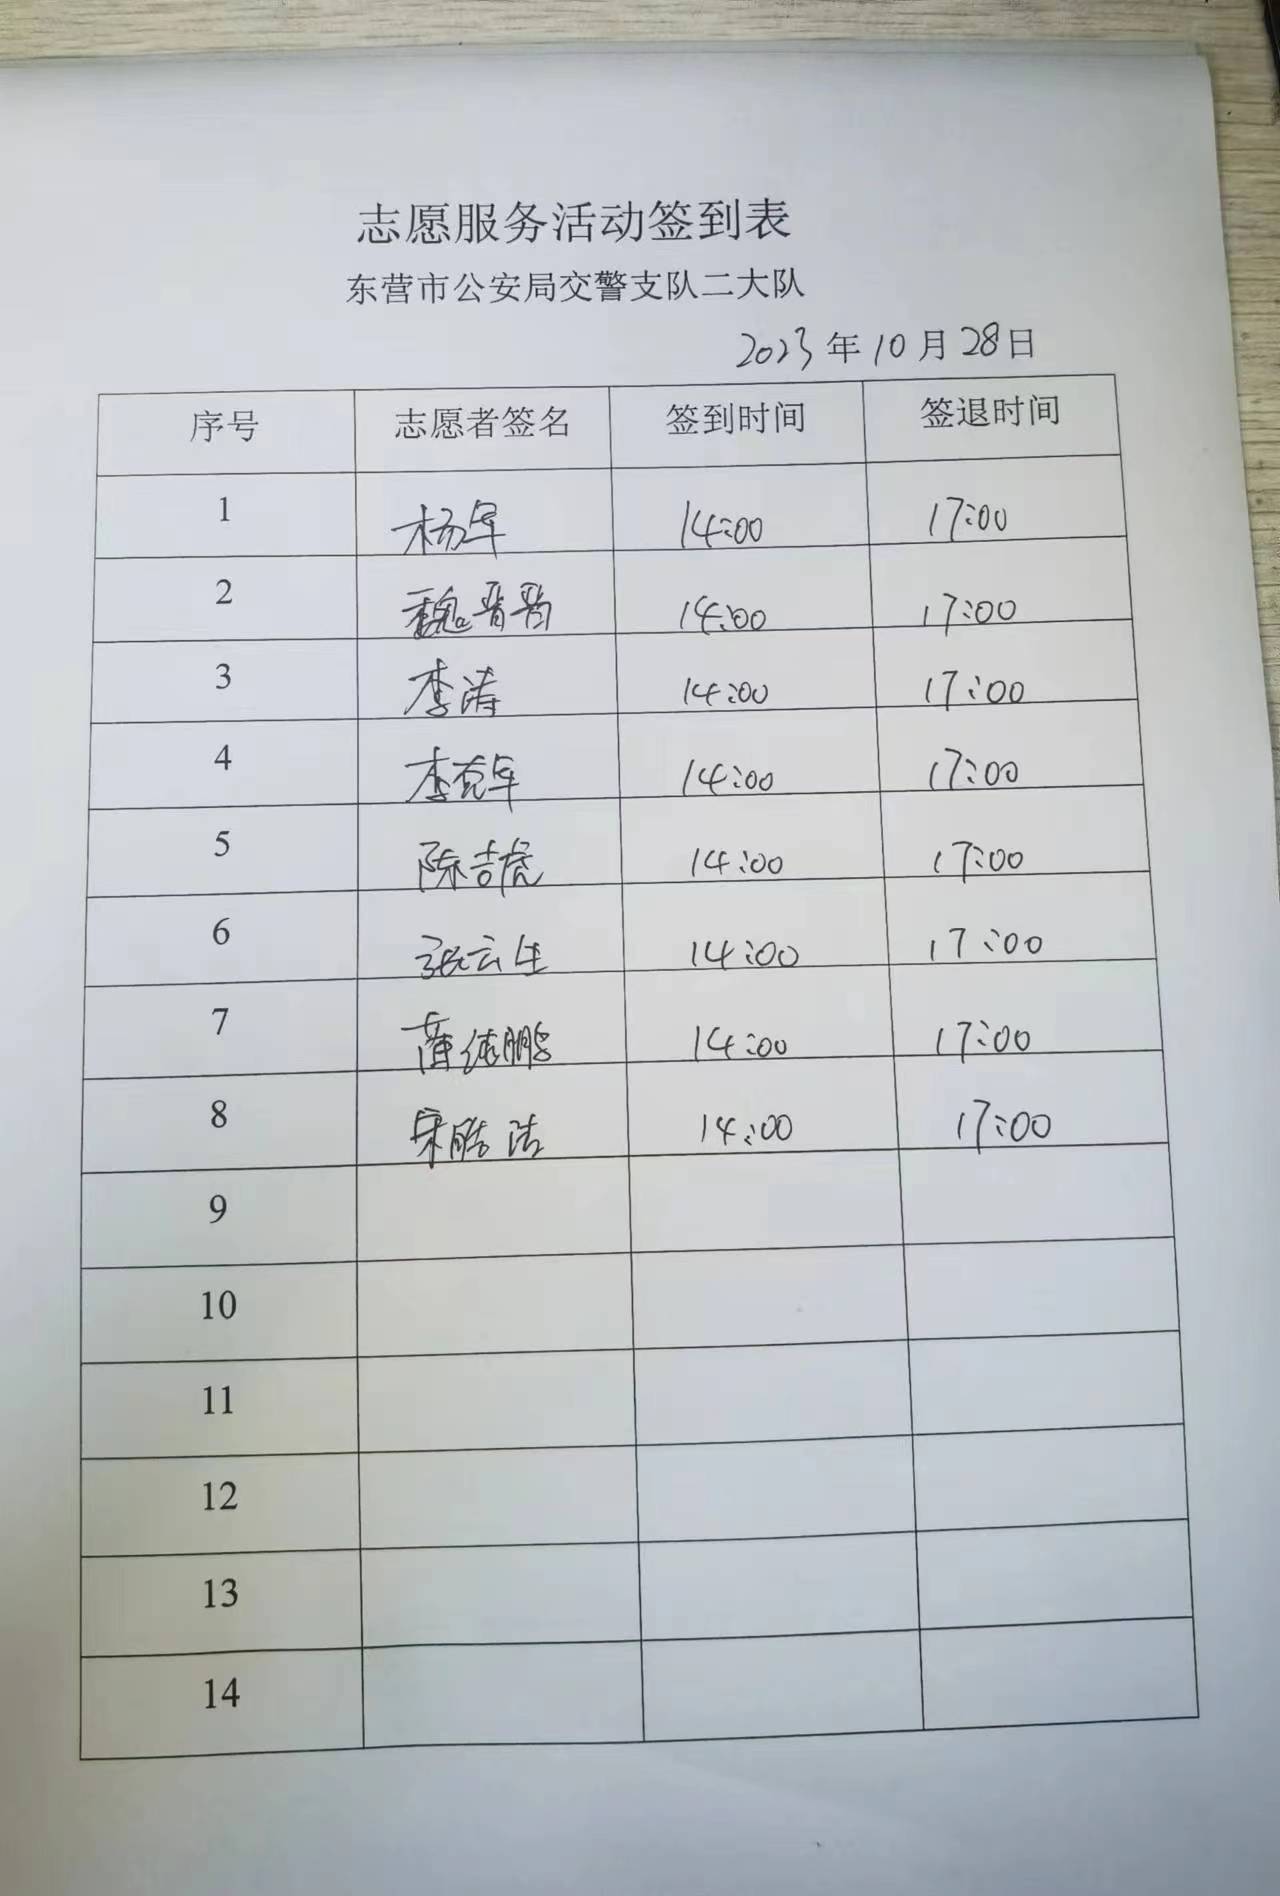 志愿服务活动签到表
东营市公安局交警支队二大队
2023年10月28日
序号 志愿者签名 签到时间 签退时间
1 杨军 14:00 17:00
2 魏晋晋 14:00 17:00
3 李涛 14:00 17:00
4 李克军 14:00 17:00
5 陈吉虎 14:00 17:00
6 张云生 14:00 17:00
7 14:00 17:00
8 14:00 17:00
9
10
11
12
13
14